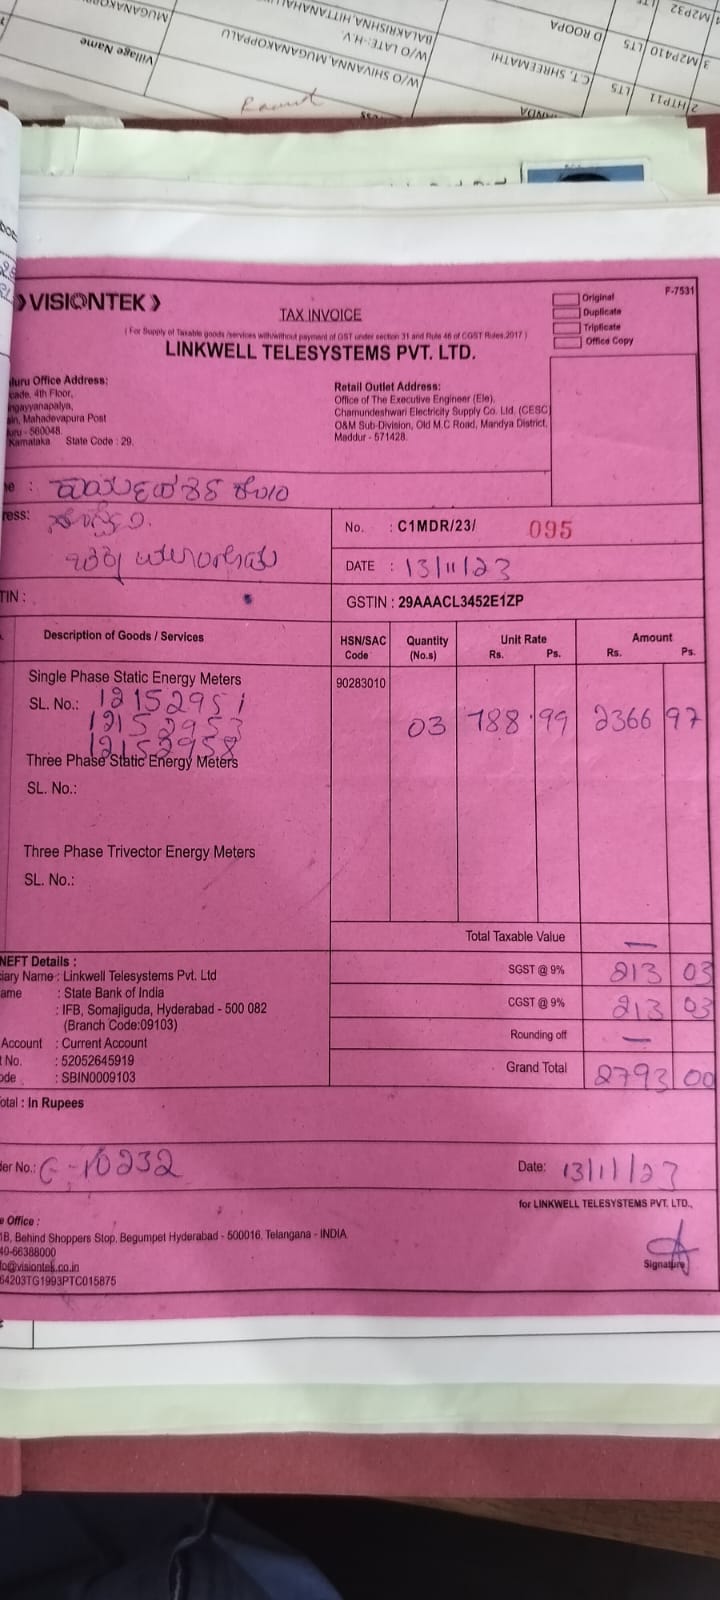 2 HTP11 LTS C.T. SHREEMATHI W/O SHIVANNA, MUGANAKOPPALU
3 M2P410 LTS D ROOPA W/O LATE:-H.V.
M2P32
Village Name
F-7531
VISIONTEK
TAX INVOICE
( For Supply of Taxable goods /services with/without payment of GST under section 31 and Rule 46 of CGST Rules,2017 )
LINKWELL TELESYSTEMS PVT. LTD.
Original
Duplicate
Triplicate
Office Copy
Office Address:
4th Floor,
Mahadevapura Post
560048.
Karnataka State Code : 29.
Retail Outlet Address:
Office of The Executive Engineer (Ele),
Chamundeshwari Electricity Supply Co. Ltd. (CESC)
O&M Sub-Division, Old M.C Road, Mandya District,
Maddur - 571428.
No. : C1MDR/23/ 095
DATE : 13/11/23
TIN :
GSTIN : 29AAACL3452E1ZP
Description of Goods / Services HSN/SAC Code Quantity (No.s) Unit Rate Rs. Ps. Amount Rs. Ps.
Single Phase Static Energy Meters 90283010
SL. No.: 12152951
12152953 03 788.99 2366 97
12152958
Three Phase Static Energy Meters
SL. No.:
Three Phase Trivector Energy Meters
SL. No.:
Total Taxable Value —
NEFT Details :
ciary Name : Linkwell Telesystems Pvt. Ltd
SGST @ 9% 213 03
ame : State Bank of India
: IFB, Somajiguda, Hyderabad - 500 082
CGST @ 9% 213 03
(Branch Code:09103)
Account : Current Account
Rounding off —
t No. : 52052645919
ode : SBIN0009103
Grand Total 2793 00
otal : In Rupees
der No.: C-10232
Date: 13/11/23
for LINKWELL TELESYSTEMS PVT. LTD.,
e Office :
1B, Behind Shoppers Stop, Begumpet Hyderabad - 500016. Telangana - INDIA
40-66388000
fo@visiontek.co.in
64203TG1993PTC015875
Signature